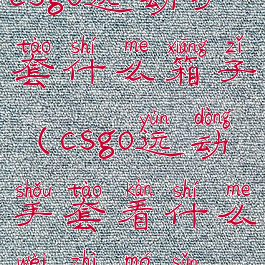 csgo运动
tào shí me xiāng zǐ
套什么箱子
yùn dòng
(csgo运动
shǒu tào kàn shí me
手套看什么